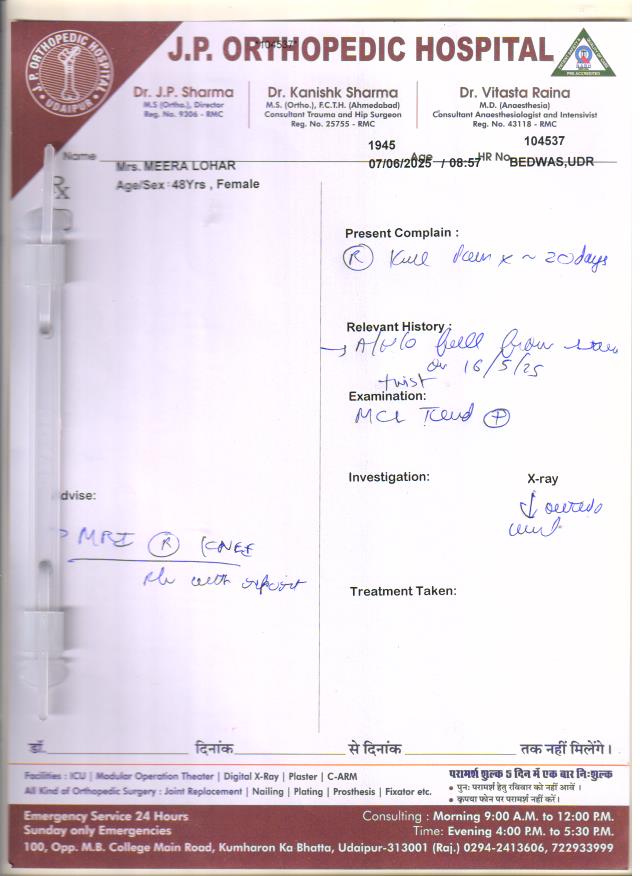 J.P. ORTHOPEDIC HOSPITAL
UDAIPUR
J.P. ORTHOPEDIC HOSPITAL
*104537*
PRE ACCREDITED
Dr. J.P. Sharma
M.S (Ortho.), Director
Reg. No. 9306 - RMC
Dr. Kanishk Sharma
M.S. (Ortho.), F.C.T.H. (Ahmedabad)
Consultant Trauma and Hip Surgeon
Reg. No. 25755 - RMC
Dr. Vitasta Raina
M.D. (Anaesthesia)
Consultant Anaesthesiologist and Intensivist
Reg. No. 43118 - RMC
1945 104537
Name Age HR No.
Mrs. MEERA LOHAR 07/06/2025 / 08:57 BEDWAS,UDR
Rx
Age/Sex : 48Yrs , Female
Present Complain :
(R) Knee Pain x ~ 20 days
Relevant History :
→ A/H/O fell from
on 16/5/25
twist
Examination:
MCL Tend (+)
Investigation: X-ray
↓
dvise:
MRI (R) KNEE
with report
Treatment Taken:
डॉ. दिनांक से दिनांक तक नहीं मिलेंगे।
Facilities : ICU | Modular Operation Theater | Digital X-Ray | Plaster | C-ARM
All Kind of Orthopedic Surgery : Joint Replacement | Nailing | Plating | Prosthesis | Fixator etc.
परामर्श शुल्क 5 दिन में एक बार निःशुल्क
• पुनः परामर्श हेतु रविवार को नहीं आवें ।
• कृपया फोन पर परामर्श नहीं करें।
Emergency Service 24 Hours
Sunday only Emergencies
Consulting : Morning 9:00 A.M. to 12:00 P.M.
Time: Evening 4:00 P.M. to 5:30 P.M.
100, Opp. M.B. College Main Road, Kumharon Ka Bhatta, Udaipur-313001 (Raj.) 0294-2413606, 722933999